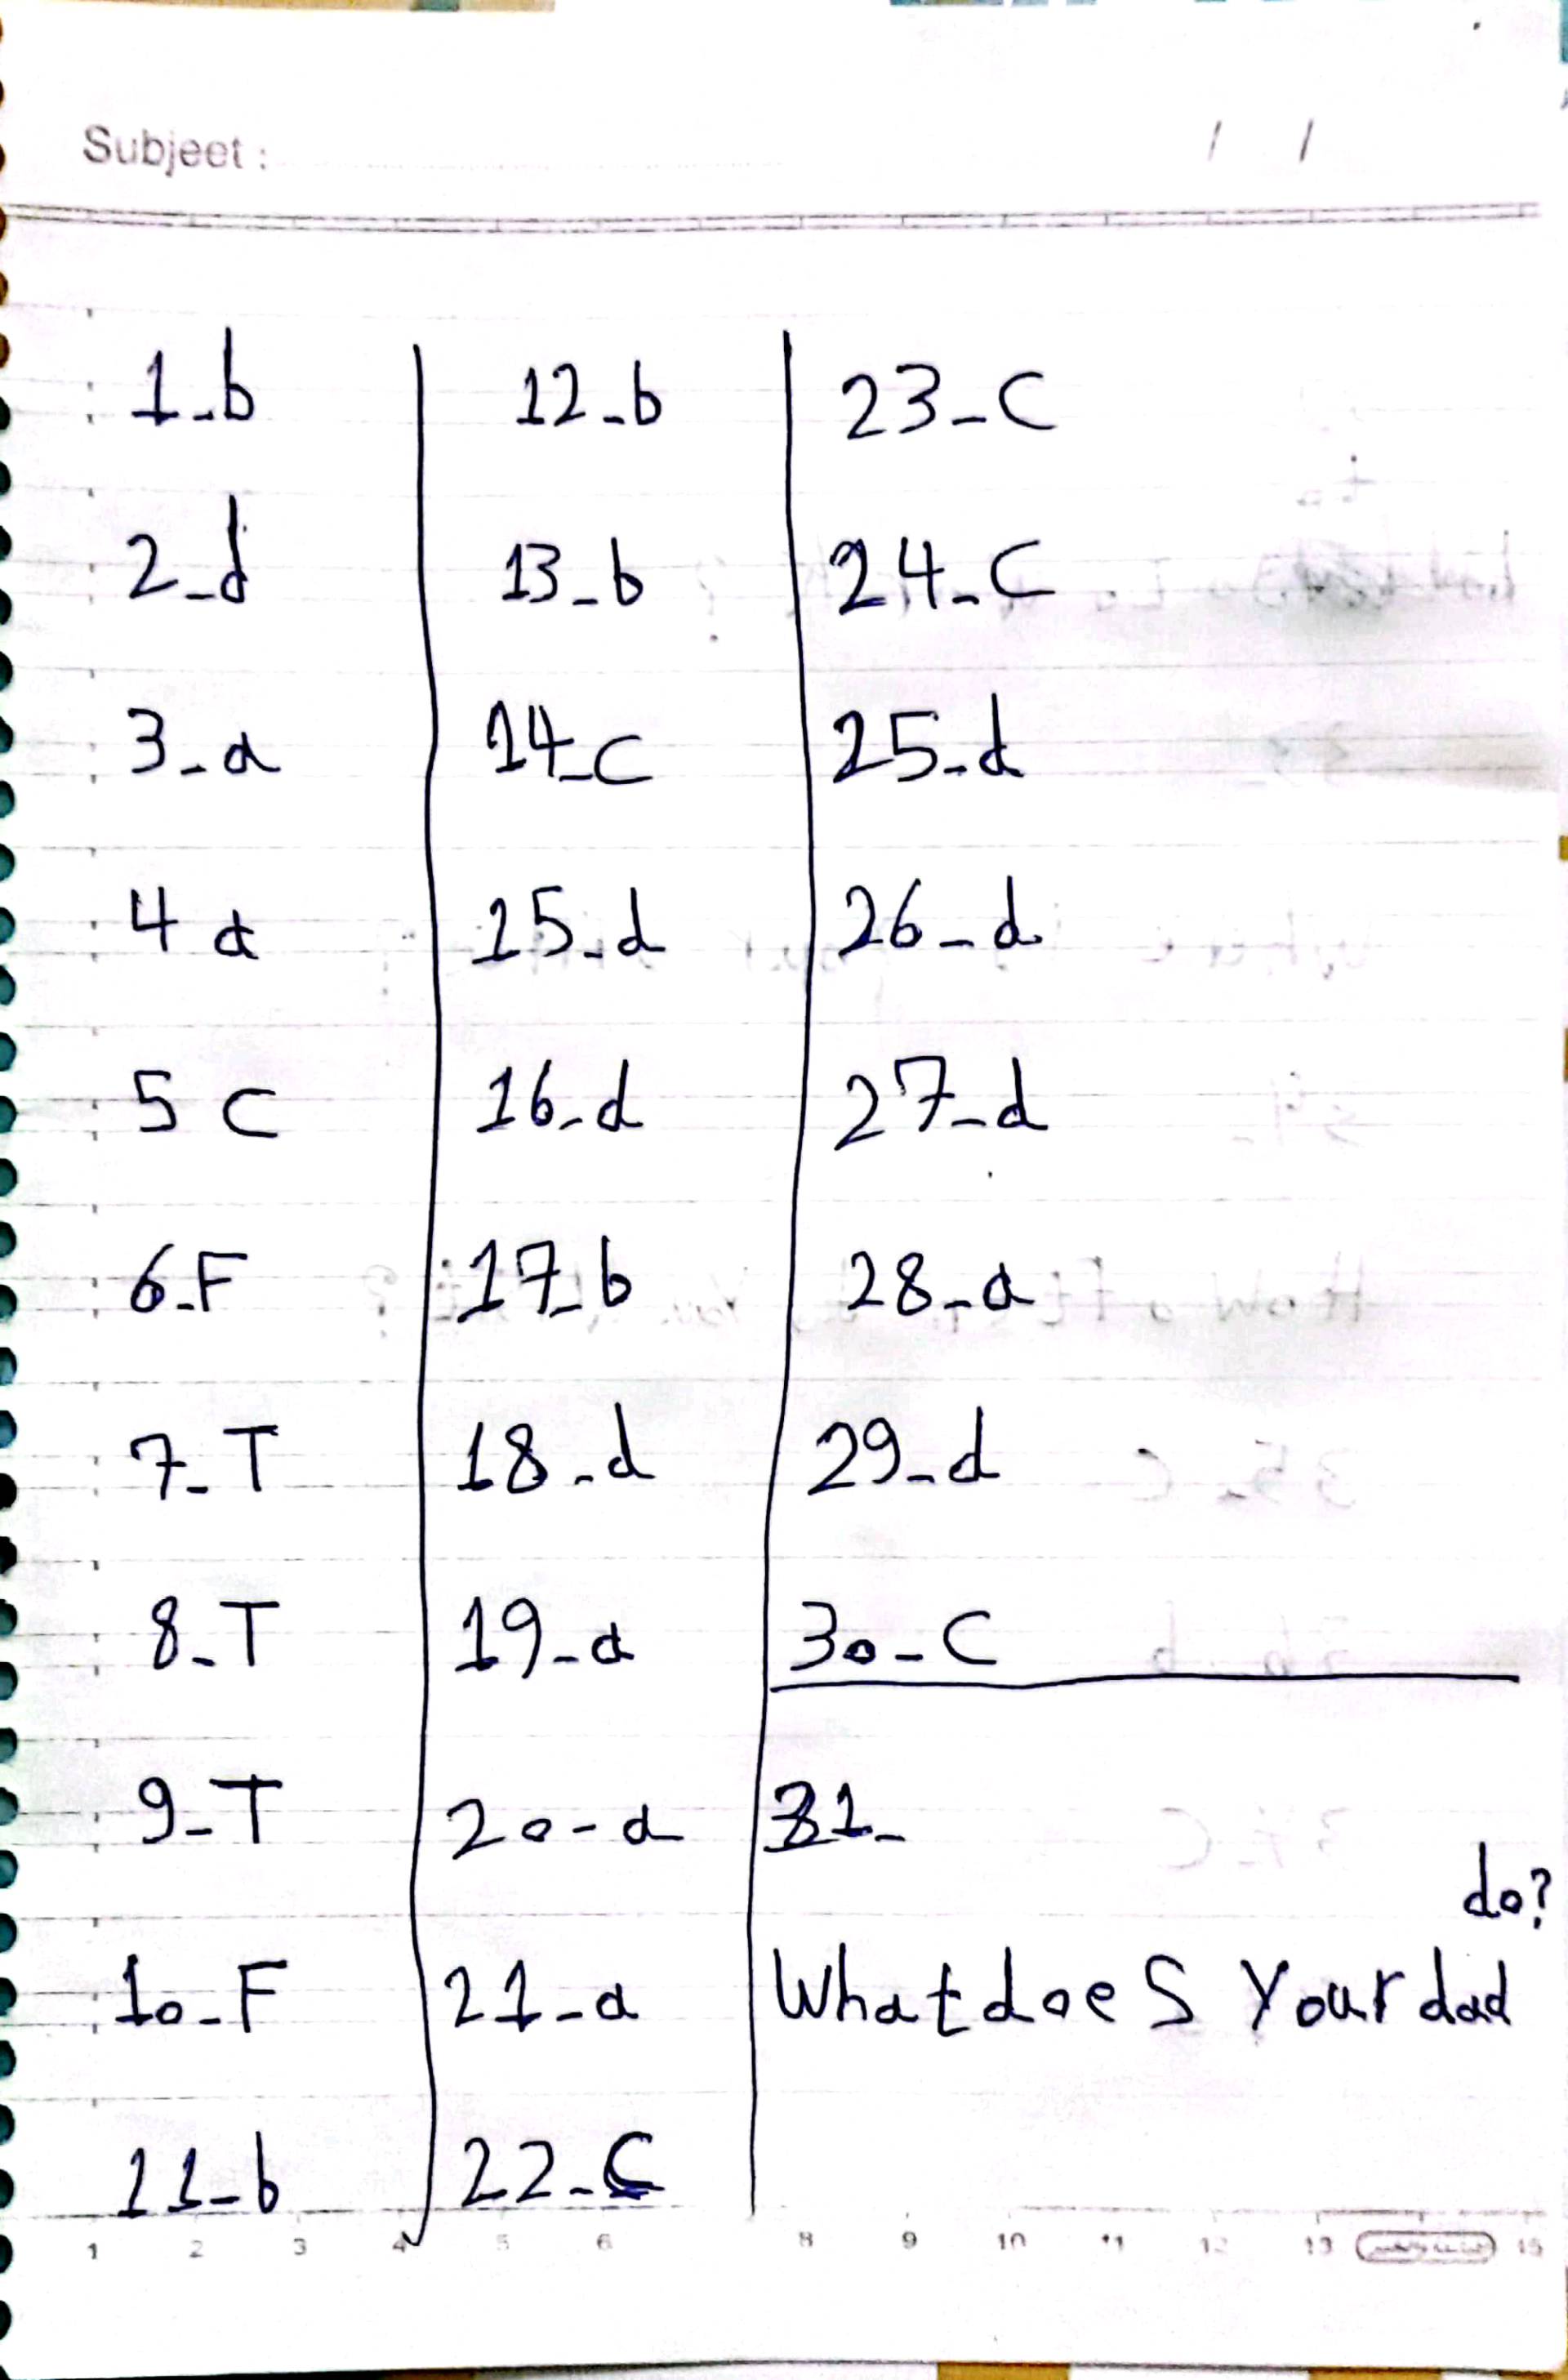 Subject :
/ /
1_b
2_d
3_a
4 a
5 C
6_F
7_T
8_T
9_T
10_F
11_b
12_b
13_b
14_C
15_d
16_d
17_b
18_d
19_a
20_a
21_a
22_C
23_C
24_C
25_d
26_d
27_d
28_a
29_d
30_C
31_
What does your dad do?
1 2 3 4 5 6 8 9 10 11 12 13 15